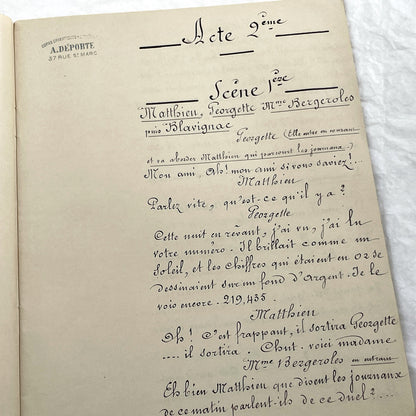 A. DÉPORTE
37 RUE ST MARC
Acte 2ème
Scène 1ère
Matthieu, Georgette Mme Bergeroles
puis Blavignac
Georgette (Elle entre en courant
et va aborder Matthieu qui parcourt les journaux)
Mon ami, Ah! mon ami si vous saviez!...
Matthieu
Parlez vite, qu'est-ce qu'il y a?
Georgette
Cette nuit en rêvant, j'ai vu, j'ai lu
votre numéro. Il brillait comme un
soleil, et les chiffres qui étaient en or se
dessinaient sur un fond d'argent. Je le
vois encore. 219,455.
Matthieu
Ah! C'est frappant, il sortira Georgette
.... il sortira. Chut. voici madame
Mme Bergeroles en entrant
Eh bien Matthieu que disent les journaux
de ce matin parlent-ils de ce duel?....